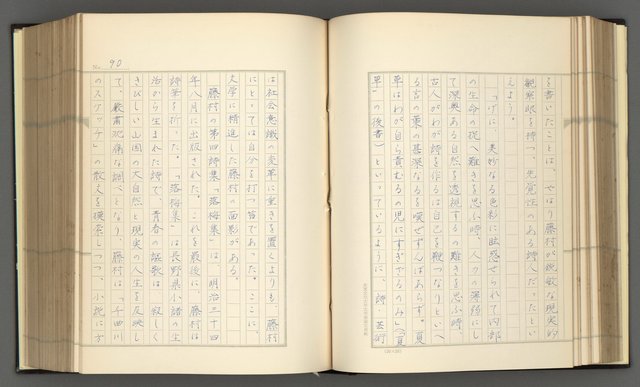 を書いたことは、やはり藤村が鋭敏な現実的
観察眼を持つ、先覚性のある詩人だったといい
えよう。
「げに、美妙なる色彩に眩惑せられて内部
の生命の捉へ難きを思ふ時、人力の薄弱にし
て深奥なる自然を透視するの難きを思ふ時、
古人がわが詩を作るは己を鞭つなりといへ
る言の葉の甚深なるを嘆ぜずんばあらず。夏
草はわが自ら責むるの児にすぎざるのみ」(「夏
草」の後書)といっているように、詩・芸術
No. 90
は社会意識の変革に重きを置くよりも、藤村
にとっては自分を打つ笞であった。ここに、
文学に精進した藤村の面影がある。
藤村の第四詩集「落梅集」は、明治三十四
年八月に出版された。これを最後に、藤村は
詩筆を折った。「落梅集」は長野県小諸の生
活から生まれた詩で、青春の謳歌は、寂しく
きびしい山国の大自然と現実の人生を反映し
て、厳粛沈痛な調べとなり、藤村は「千曲川
のスケッチ」の散文を模索しつつ、小説に方